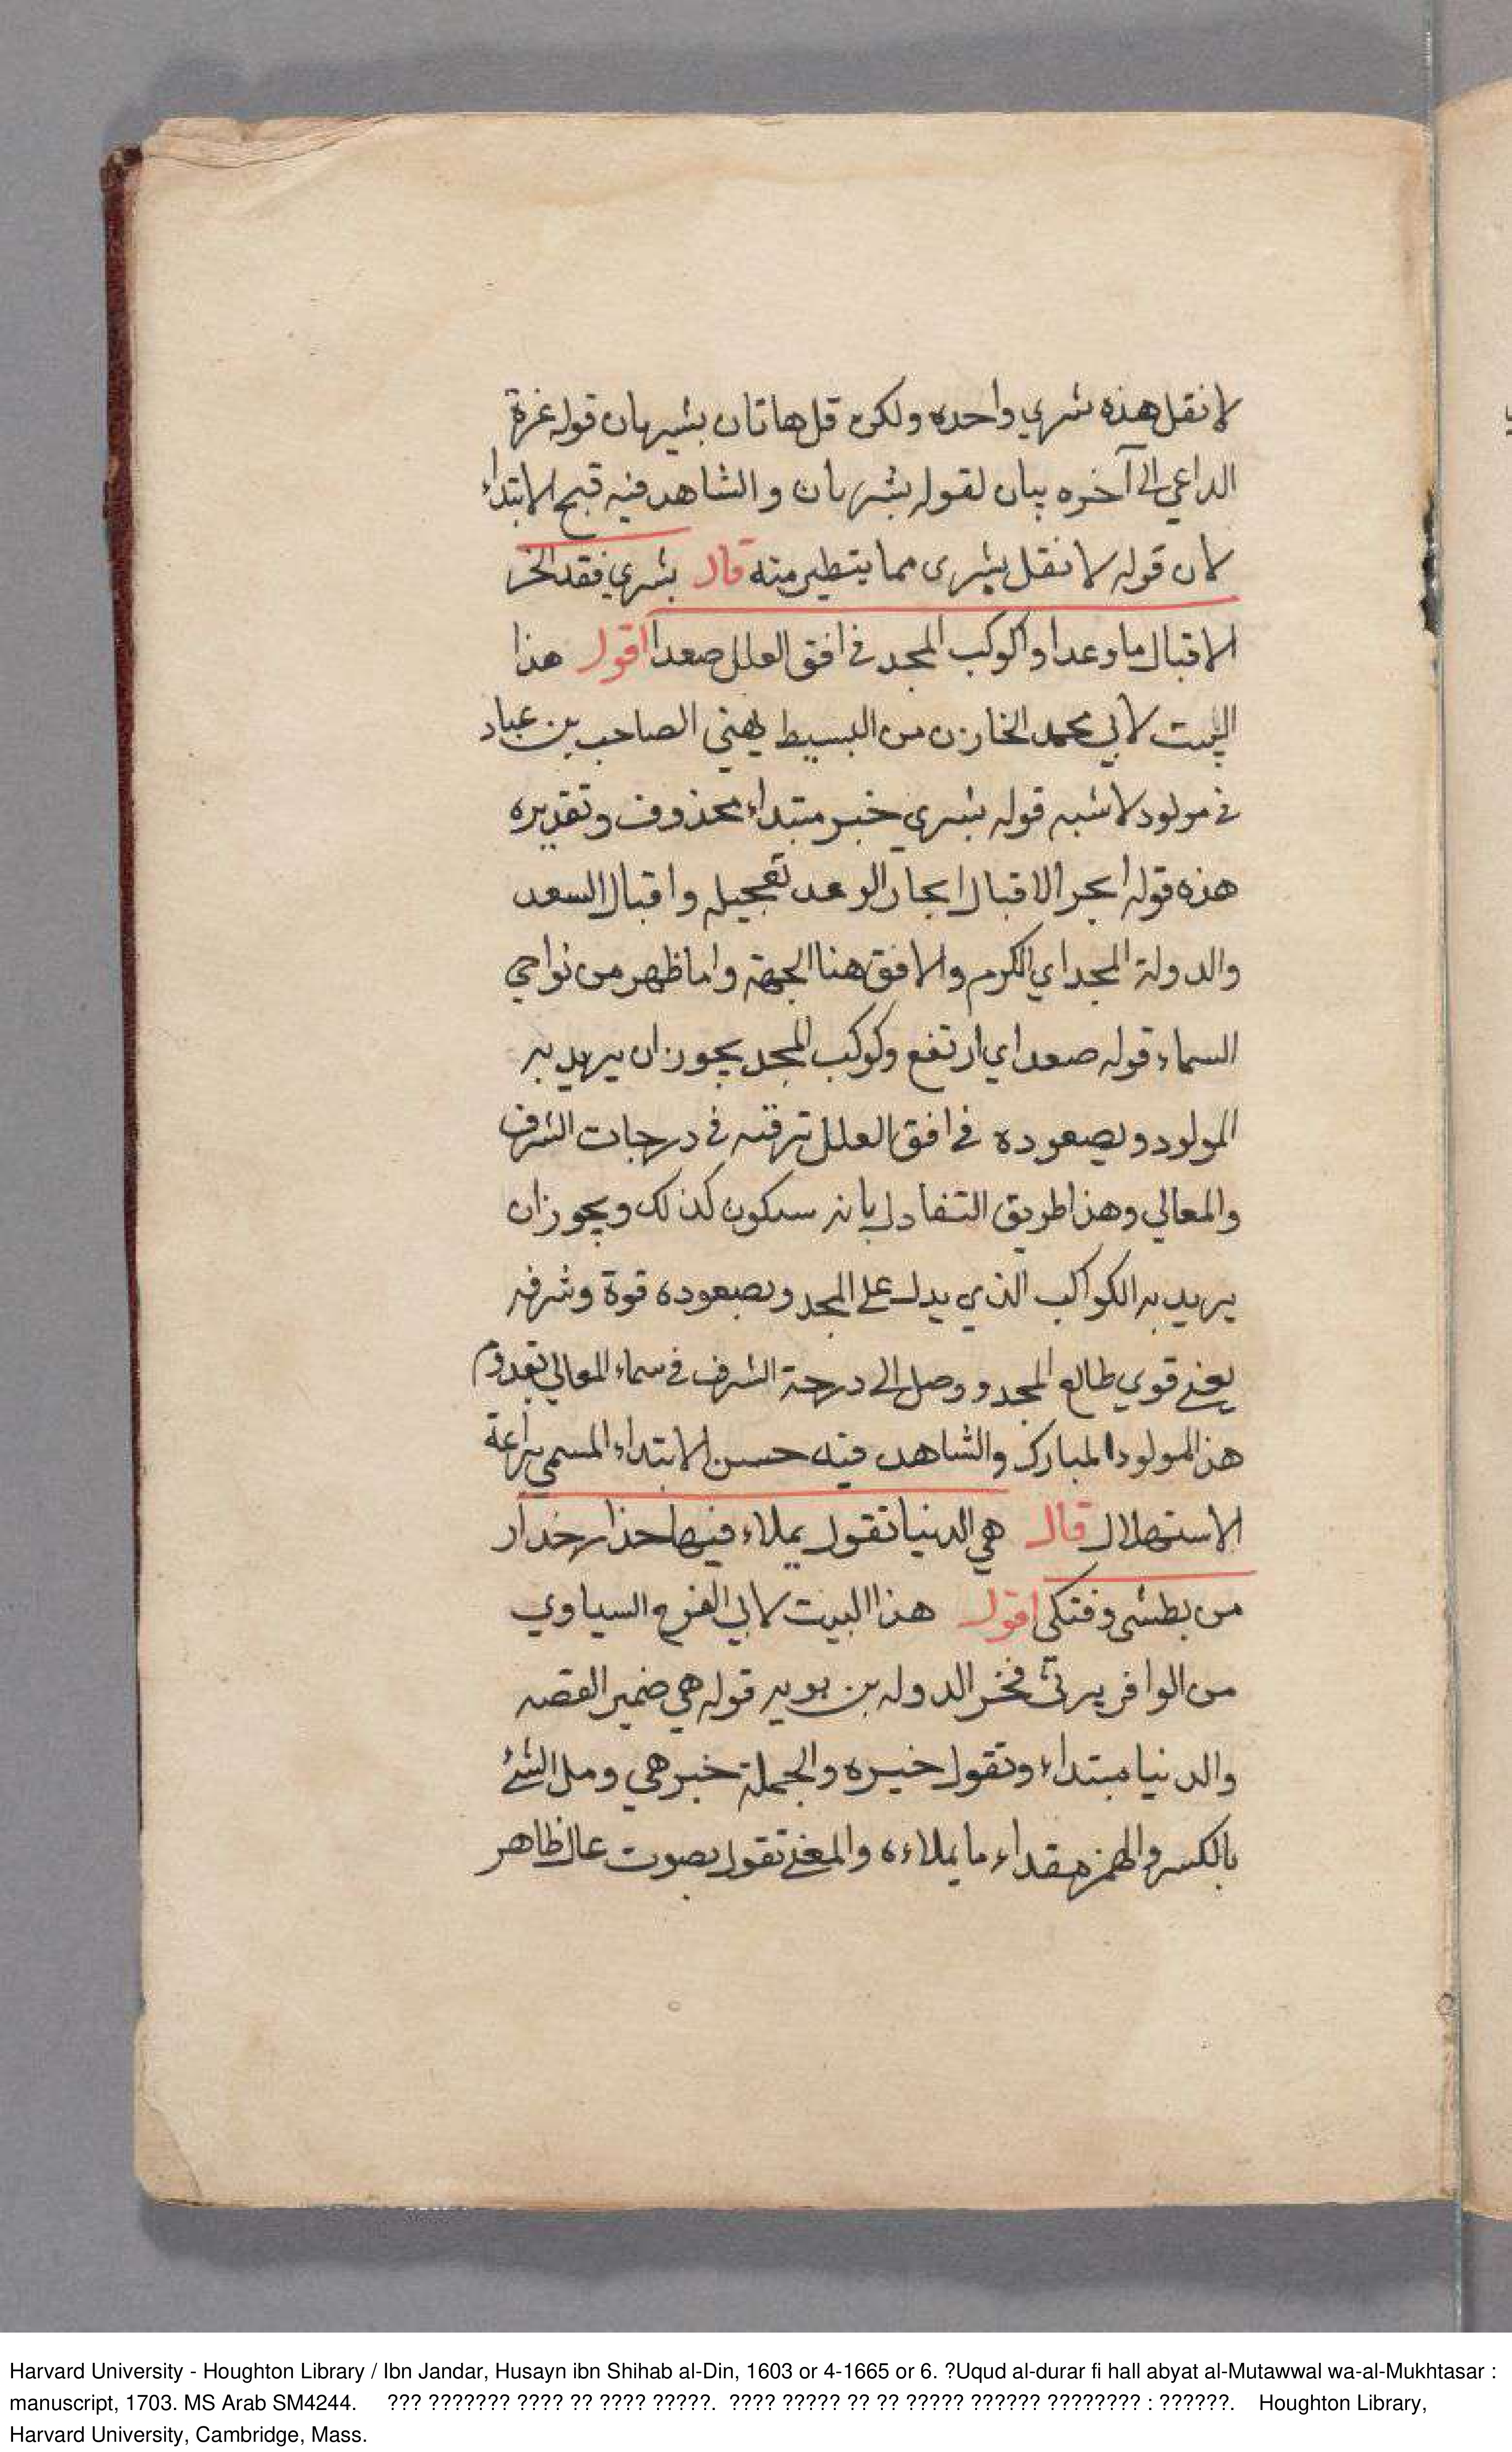 لا تقل هذه بشري واحده ولكن قل هاتان بشريان قوله غرة
الداعي الى آخره بيان لقوله بشريان والشاهد فيه قبح الابتداء
لان قوله لا تقل بشرى مما يتطير منه قال بشري فقد انجز
الاقبال ما وعدا وكوكب المجد في افق العلل صعدا اقول هذا
البيت لابي محمد الخازن من البسيط يهني الصاحب بن عباد
في مولود لابنته قوله بشري خبر مبتداء محذوف وتقديره
هذه قوله انجز الاقبال انجاز الوعد تعجيله واقبال السعد
والدولة المجد اي الكرم والافق هنا الجهة واما ظهر من نواحي
السماء قوله صعد اي ارتفع وكوكب المجد يجوز ان يريد به
المولود وبصعوده في افق العلل ترقيه في درجات الشرف
والمعالي وهذا طريق التفاول بانه سيكون كذلك ويجوز ان
يريد به الكواكب الذي يدل على المجد وبصعوده قوة وشرفه
يعني قوي طالع المجد ووصل الى درجة الشرف في سماء المعالي بقدوم
هذ المولود المبارك والشاهد فيه حسن الابتداء المسمى براعة
الاستهلال قال هي الدنيا تقول بملاء فيها حذار حذار
من بطشى وفتكى اقول هذا البيت لابي الفرج السياوي
من الوافر يرثى فخر الدوله بن بويه قوله هي ضمير القصه
والدنيا مبتداء وتقول خبره والجملة خبر هي ومل الشئ
بالكسر والهمز مقداء ما يملاءه والمعنى تقول بصوت عال ظاهر
Harvard University - Houghton Library / Ibn Jandar, Husayn ibn Shihab al-Din, 1603 or 4-1665 or 6. ?Uqud al-durar fi hall abyat al-Mutawwal wa-al-Mukhtasar :
manuscript, 1703. MS Arab SM4244. ??? ??????? ???? ?? ???? ?????. ???? ????? ?? ?? ????? ?????? ???????? : ??????. Houghton Library,
Harvard University, Cambridge, Mass.